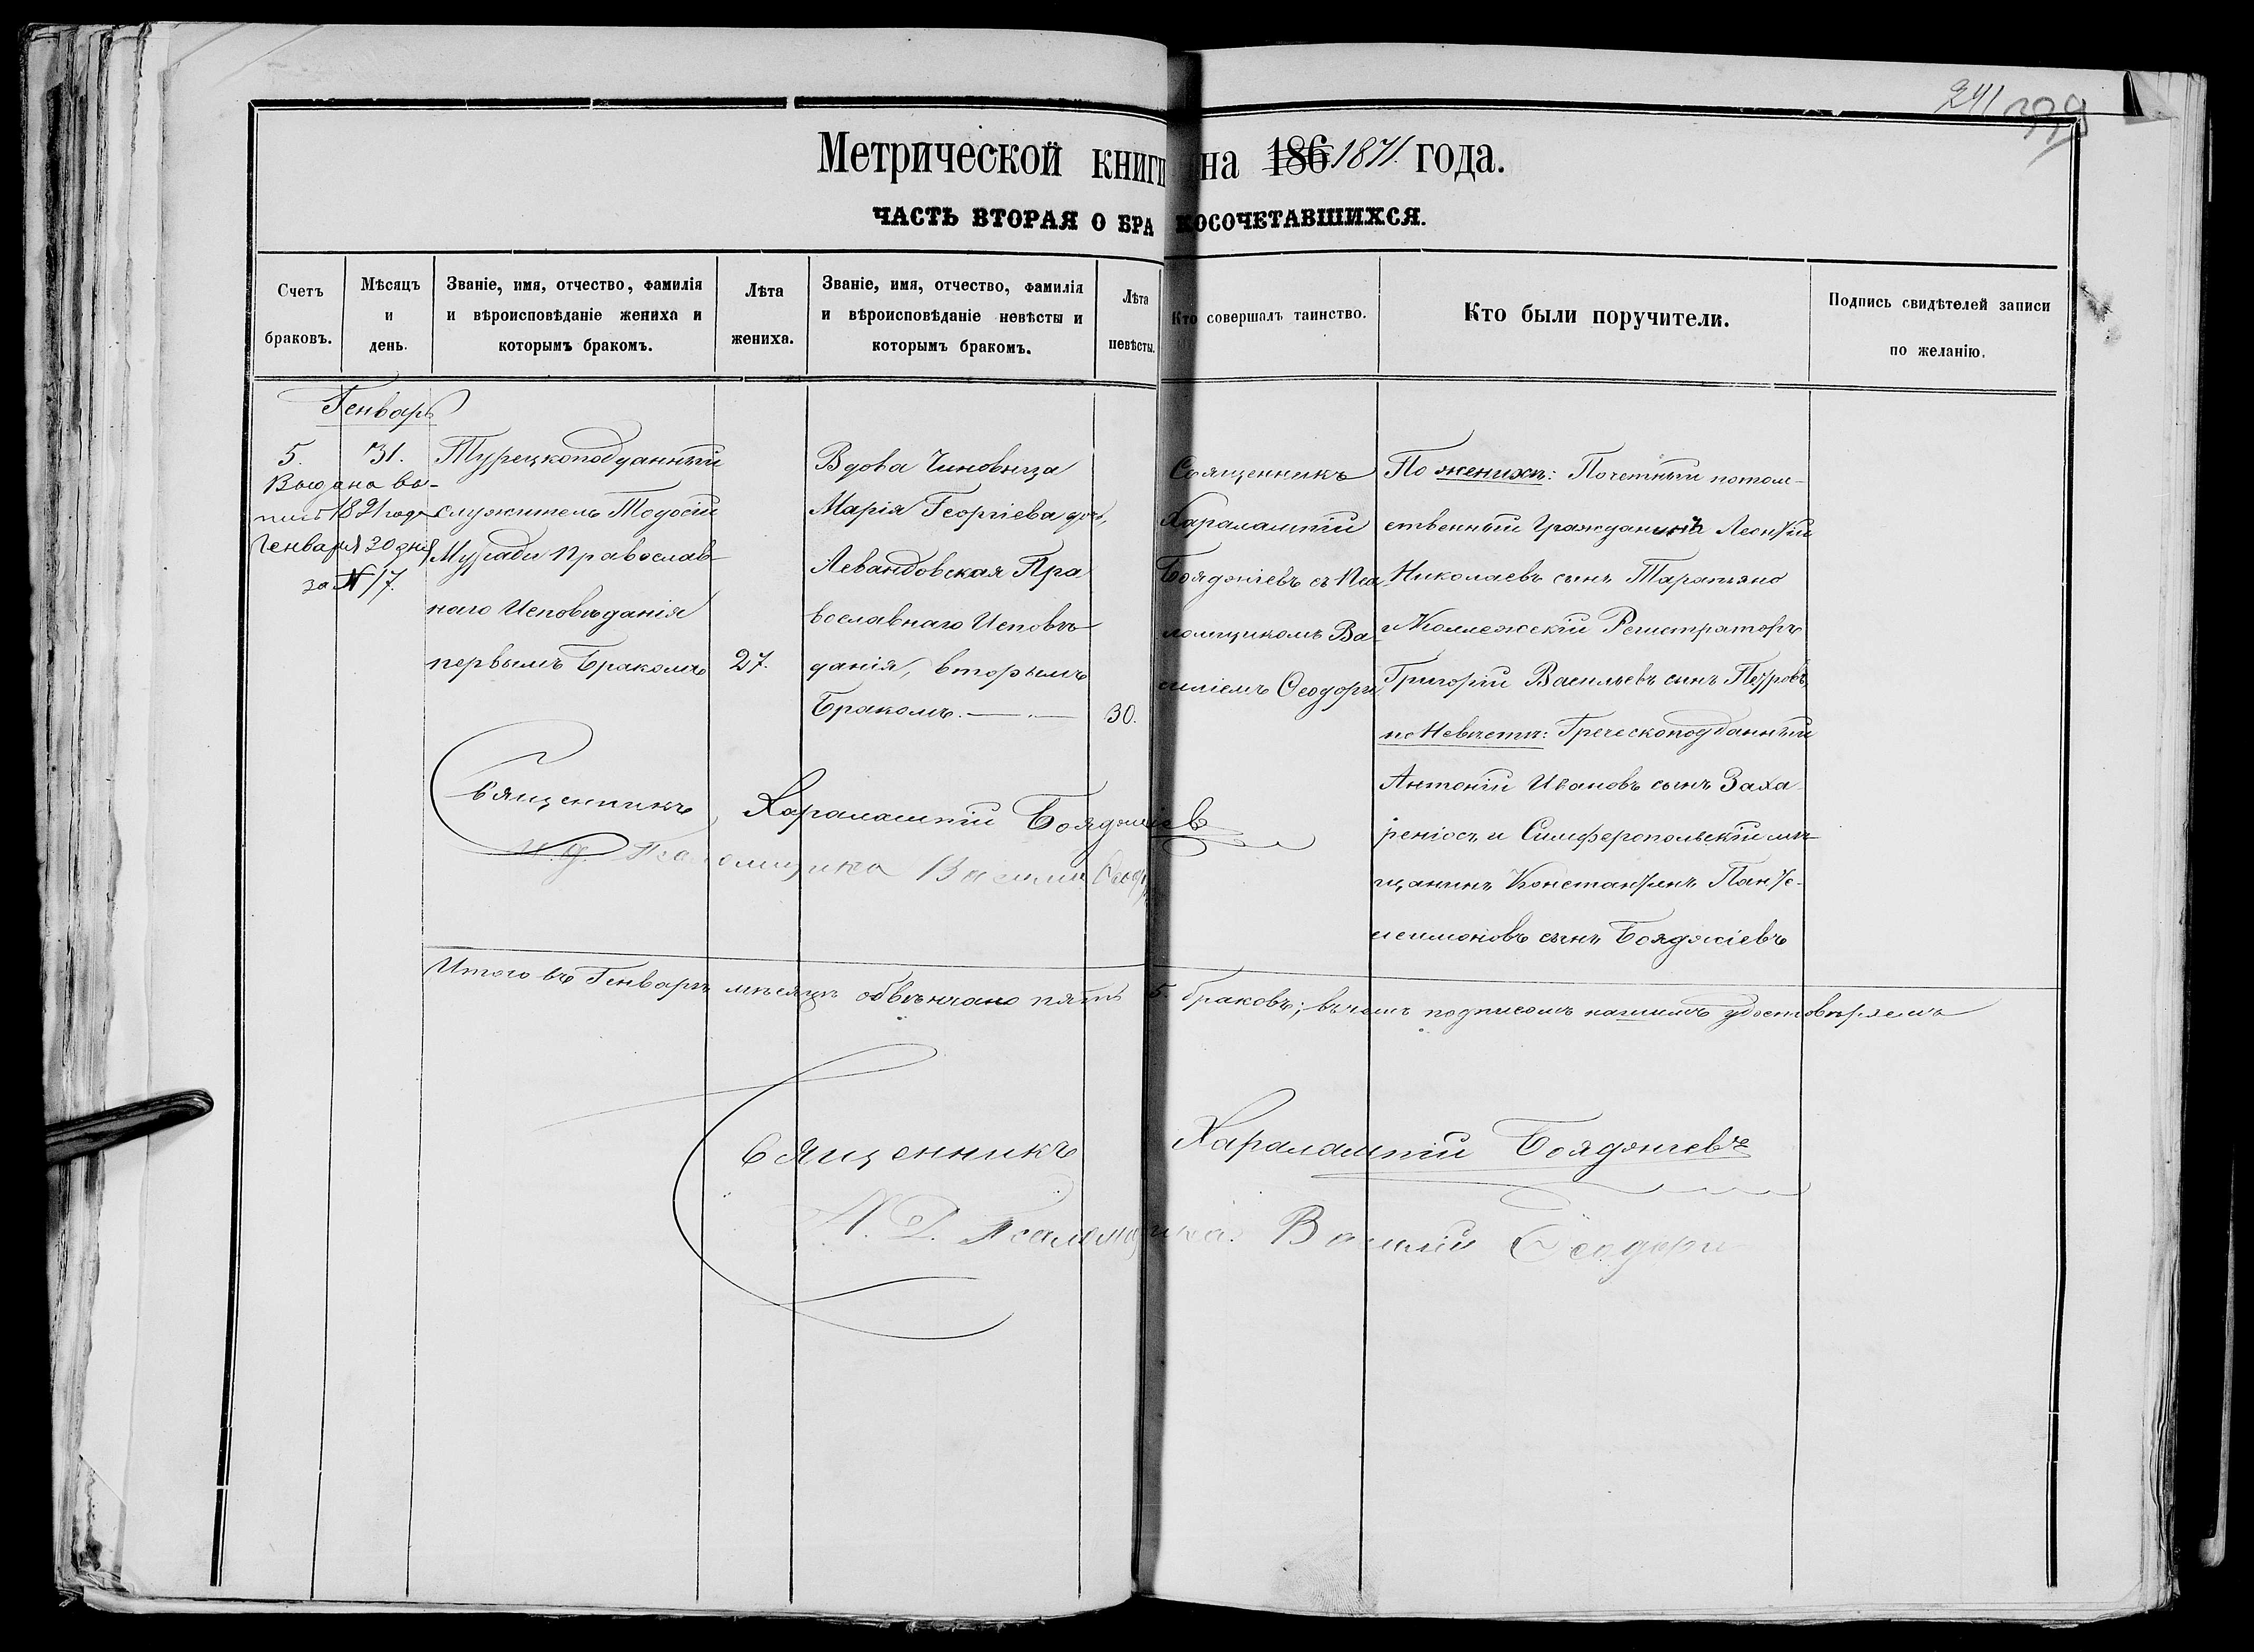 241
339
Метрической книги на 186 1871. года.
ЧАСТЬ ВТОРАЯ О БРАКОСОЧЕТАВШИХСЯ.
Счетъ браковъ.
Мѣсяцъ и день.
Званіе, имя, отчество, фамилія
и вѣроисповѣданіе жениха и
которымъ бракомъ.
Лѣта жениха.
Званіе, имя, отчество, фамилія
и вѣроисповѣданіе невѣсты и
которымъ бракомъ.
Лѣта невѣсты.
Кто совершалъ таинство.
Кто были поручители.
Подпись свидѣтелей записи
по желанію.
Генварь
5.
31.
Выдана вы-
пись 1891 года
Генваря 20 дня
за N 17.
Турецкоподданный
служитель Тодосій
Православ-
наго Исповѣданія
первымъ Бракомъ
27.
Вдова Чиновница
Марія Георгіева дочь,
Левандовская Пра
вославнаго Исповѣ
данія, вторымъ
Бракомъ.
30.
Священникъ
Харалампій
Бояджіевъ съ Пса
ломщикомъ Ва-
силіемъ Ѳеодори
По женихѣ: Почетный потом-
ственный Гражданинъ Леонтій
Николаевъ сынъ
и Коллежскій Регистраторъ
Григорій Васильевъ сынъ Петровъ,
по Невѣстѣ: Греческоподданный
Антоній Ивановъ сынъ Заха-
реніосъ и Симферопольскій мѣ-
щанинъ Константинъ Панте-
леимоновъ сынъ Бояджіевъ
Священникъ Харалампій Бояджіев
И. д. Псаломщика Василій Ѳеодори
Итого въ Генварѣ мѣсяцѣ обвѣнчано пять 5. браковъ; въ чемъ подписомъ нашимъ удостовѣряемъ
Священникъ Харалампій Бояджіевъ
И. Д. Псаломщика Василій Ѳеодори